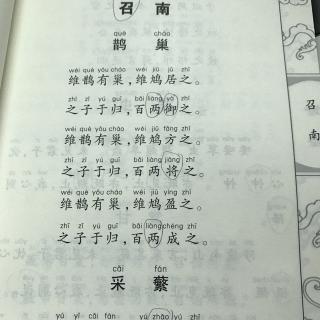 召 南
què cháo
鹊 巢
wéi què yǒu cháo wéi jiū jū zhī
维鹊有巢，维鸠居之。
zhī zǐ yú guī bǎi liàng yù zhī
之子于归，百两御之。
wéi què yǒu cháo wéi jiū fāng zhī
维鹊有巢，维鸠方之。
zhī zǐ yú guī bǎi liàng jiāng zhī
之子于归，百两将之。
wéi què yǒu cháo wéi jiū yíng zhī
维鹊有巢，维鸠盈之。
zhī zǐ yú guī bǎi liàng chéng zhī
之子于归，百两成之。
cǎi fán
采 蘩
yú yǐ cǎi fán yú zhǎo yú zhǐ
召
南